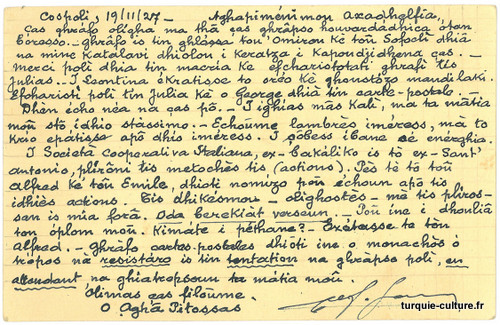 Cospoli, 19/11/27 - Aghapiménimou Axadhelfia,
ças ghráfo oligha ma thá ças ghrápso houvardádhica ótan
Eorosso. - Ghráfo is tin ghlóssa tou Omirou ké toú Sofoclí dhiá
na mine Katalavi dhiólou i Keratza i Kapoudjidhena ças. -
Merci poli dhia tin macria ké efcharistotati ghrafi tis
Julias. - I Leontina ékratisse to oréo ké ghoustózo mandilaki.
Efcharisti poli tin Julia ké o George dhiá tin carte-postale. -
- Dhén écho néa na ças pó. - I ighias mas Kali, ma ta mátia
moú stó idhio stássimo. - Echoúme lambrés iméress, má to
krio epatisse apó dhio iméress. I sóbess ibane sé enérghia.
I Società Cooperativa Italiana, ex-bakáliko is tó ex-Sant'
antonio, plironi tis metochés tis (actions). Pés tó toú
Alfred ké toú Emile, dhioti nomizo poú échoun apó tis
idhiés actions. Tis dhikésmou - olighostés - mé tis pliros-
sen is mia forá. Oda berekiát versoun. - Poú ine i dhouliá
ton óplom mou. Kimate i péthane? - Exétasse to toú
Alfred. - Ghráfo cartes-postales dhioti ine o monachós ó
tropos na resistáro is tin tentation na ghrápso poli, en
attendant na ghiatrepsoun ta mátia moú.
Ólimas ças filoúme.
O Aghá Pitossas
turquie-culture.fr